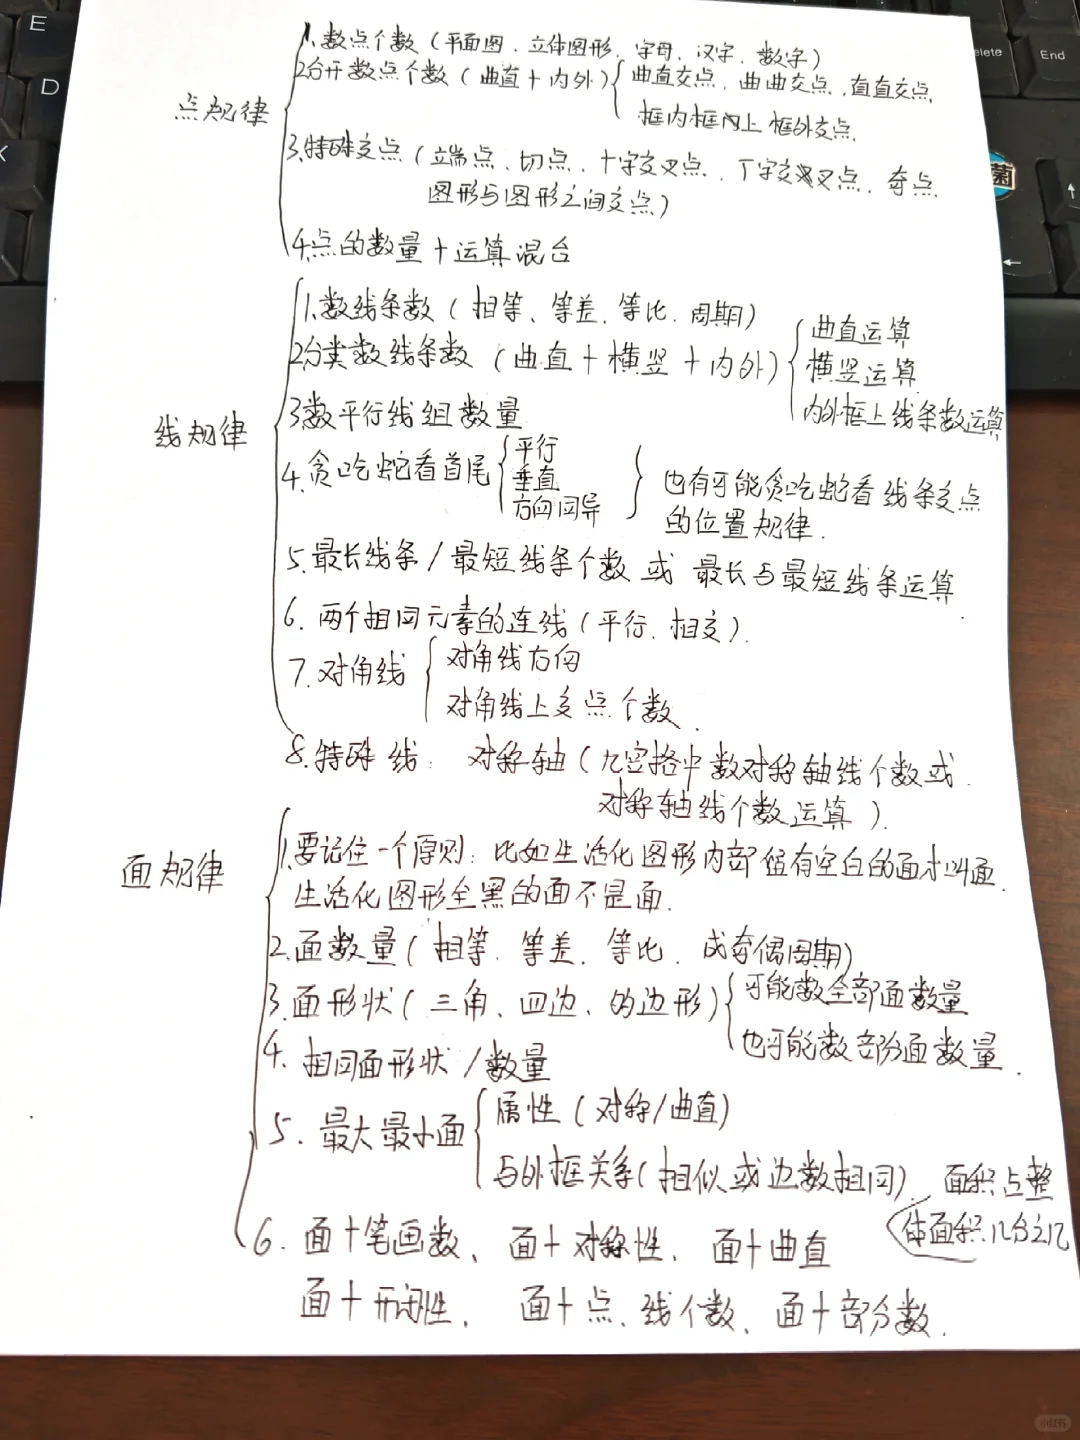 E
D
K
Delete
End
菌
点规律
1.数点个数(平面图、立体图形、字母、汉字、数字)
2分开数点个数(曲直+内外)
曲直交点、曲曲交点、直直交点
框内框上框外交点.
3.特殊交点(端点、切点、十字交叉点、丁字交叉点、奇点
图形与图形之间交点)
4.点的数量+运算混合
线规律
1.数线条数(相等、等差、等比、周期)
2分类数线条数(曲直+横竖+内外)
曲直运算
横竖运算
内外框上线条数运算
3数平行线组数量
4.贪吃蛇看首尾
平行
垂直
方向同异
也有可能贪吃蛇看线条交点
的位置规律.
5.最长线条/最短线条个数或 最长与最短线条运算
6.两个相同元素的连线(平行、相交).
7.对角线
对角线方向
对角线上交点个数.
8.特殊线: 对称轴(九宫格中数对称轴线个数或
对称轴线个数运算).
面规律
1.要记住一个原则:比如生活化图形内部留有空白的面才叫面.
生活化图形全黑的面不是面.
2.面数量(相等、等差、等比、成奇偶周期)
3.面形状(三角、四边、的边形)
可能数全部面数量
也可能数部分面数量.
4.相同面形状/数量
5.最大最小面
属性(对称/曲直)
与外框关系(相似或边数相同)
面积占整
体面积几分之几
6.面+笔画数、面+对称性、面+曲直
面+开闭性、面+点、线个数、面+部分数.
小红书